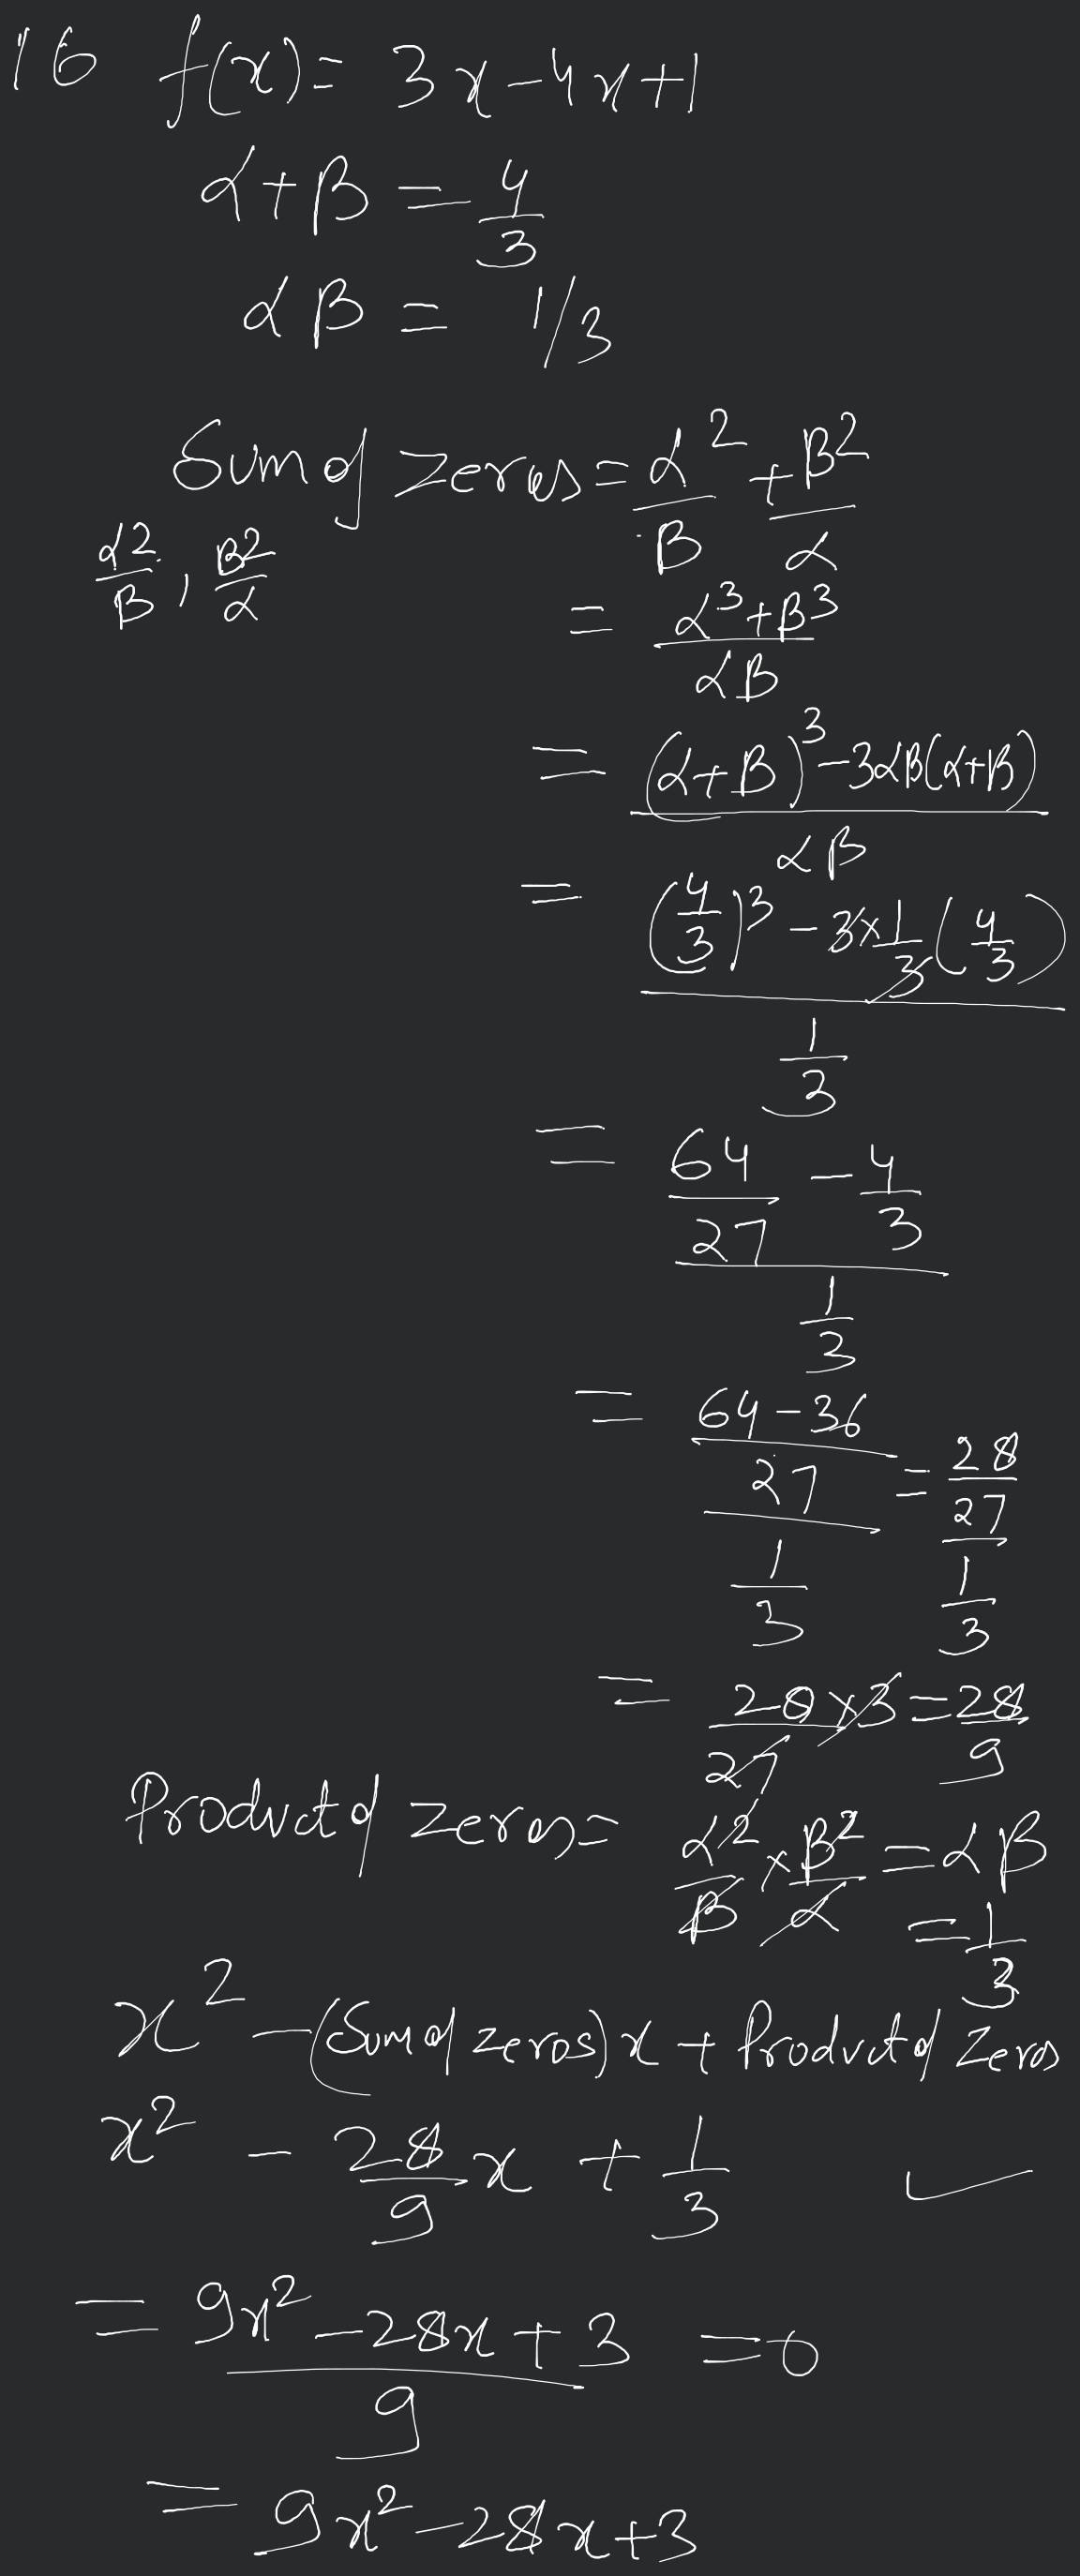 16 f(x) = 3x - 4x + 1
α + β = 4/3
αβ = 1/3
Sum of zeroes = α²/β + β²/α
α²/β , β²/α
= (α³ + β³)/(αβ)
= ((α + β)³ - 3αβ(α + β))/(αβ)
= ((4/3)³ - 3 × 1/3 (4/3))/(1/3)
= (64/27 - 4/3)/(1/3)
= ((64 - 36)/27)/(1/3) = (28/27)/(1/3)
= 28/27 × 3 = 28/9
Product of zeros = α²/β × β²/α = αβ
= 1/3
x² - (Sum of zeros) x + Product of zeros
x² - 28/9 x + 1/3 ✓
= (9x² - 28x + 3)/9 = 0
= 9x² - 28x + 3